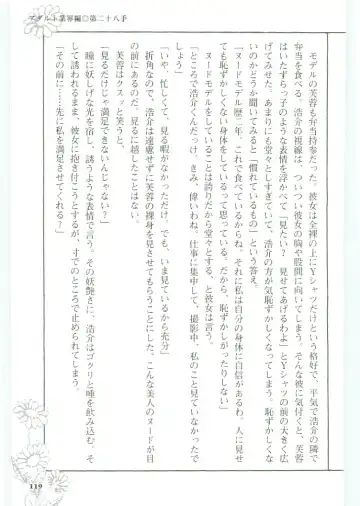 アダルト業界編〇第二十八手
モデルの芙蓉も弁当持参だった。彼女は全裸の上にYシャツだけという格好で、平気で浩介の隣で
弁当を食べる。浩介の視線は、ついつい彼女の胸や股間に向いてしまう。そんな彼に気付くと、芙蓉
はいたずらっ子のような表情を浮かべて「見たい？　見せてあげるわよ」とYシャツの前の大きく広
げてみせた。あまりにも堂々としすぎていて、浩介の方が気恥ずかしくなってしまう。恥ずかしくな
いのかどうか聞いてみると「慣れているもの」という答え。
「ヌードモデル歴二年、これで食べているからね。それに私は自分の身体に自信があるわ。人に見せ
ても恥ずかしくない身体をしているって思っている。だから、恥ずかしがったりしない」
ヌードモデルをしていることは誇りだから堂々とする、と彼女は言う。
「ところで浩介くんだっけ。きみ、偉いわね。仕事に集中して、撮影中、私のこと見ていなかったで
しょう」
「いや、忙しくて、見る暇がなかっただけで。でも、いま見ているから充分」
折角なので、浩介は遠慮せずに芙蓉の裸身を見させてもらうことにした。こんな美人のヌードが目
の前にあるのだ。見るに越したことはない。
芙蓉はクスッと笑うと、
「見るだけじゃ満足できないんじゃない？」
瞳に妖しげな光を宿し、誘うような表情で言う。その妖艶さに、浩介はゴクリと唾を飲み込む。そ
して誘われるまま、彼女に抱き付こうとするが、寸でのところで止められてしまう。
「その前に……先に私を満足させてくれる？」
119